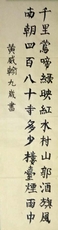 千里鶯啼綠映紅水村山郭酒旗風
南朝四百八十寺多少樓臺煙雨中
黃威翰九歲書